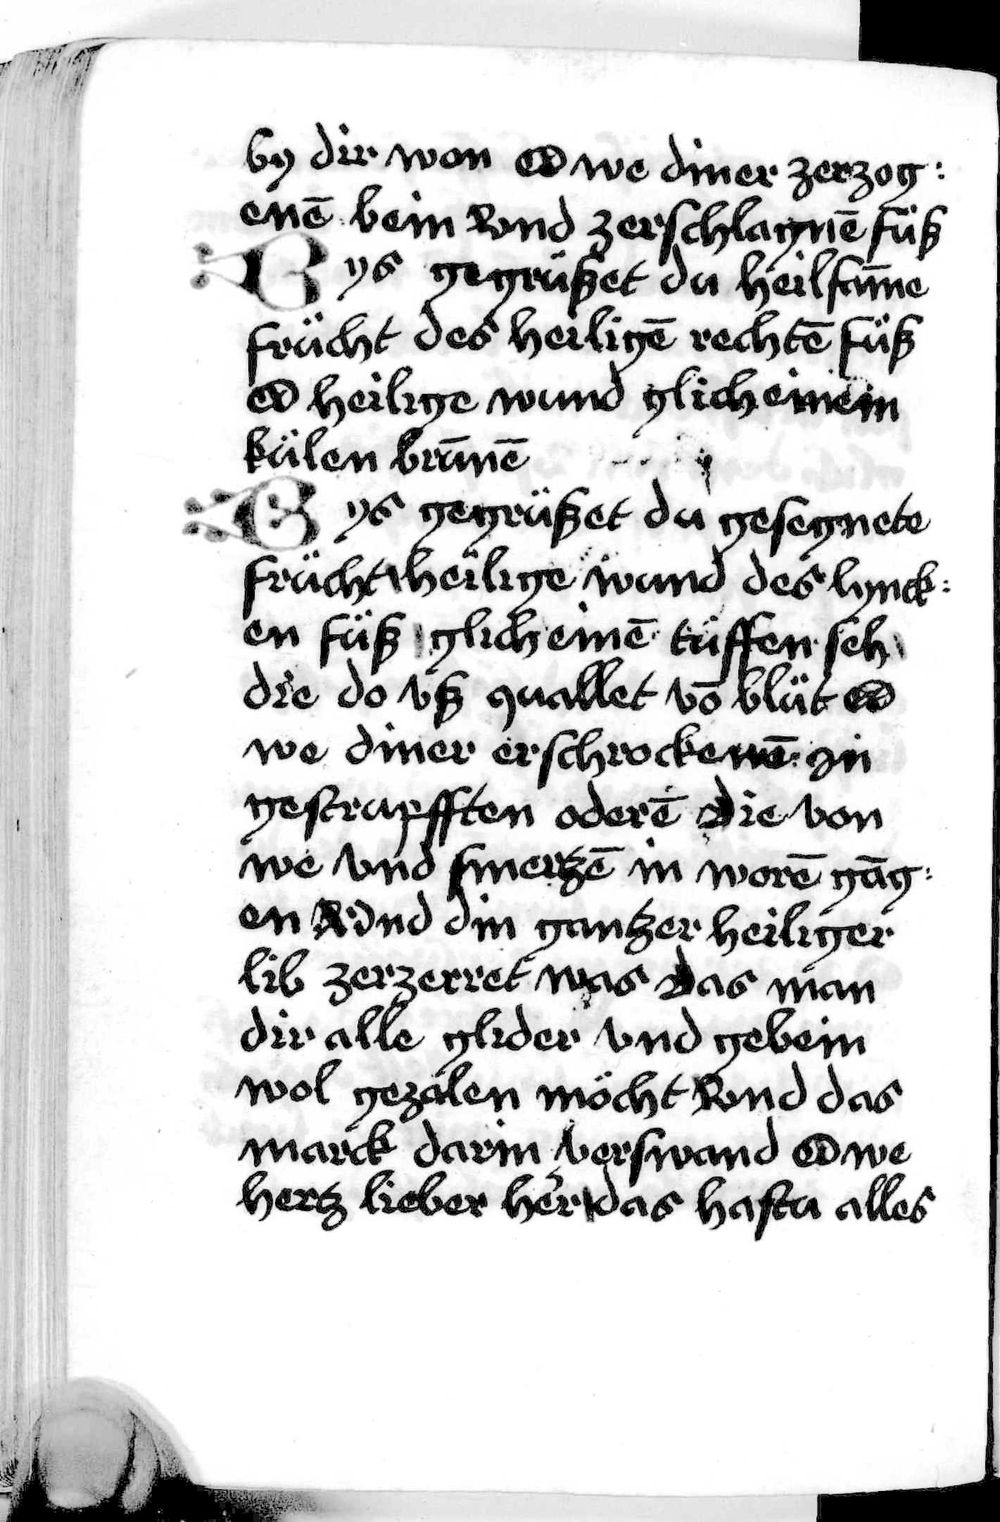 by dir won O we diner zerzog:
enē bein Vnd zerschlagnē fu̇ß
Bys gegrüßet du heilsam̄e
frücht des heiligē rechtē fu̇ß
O heilige wund glich einem
külen brūnē
Bys gegrüßet du gesegnete
frücht heilige wund des lynck:
en fu̇ß glich einē tüffen seh
die do vß quallet vō blüt O
we diner erschrockenē in
gestrapfften oderē Die von
we vnd smertzē in worē gāg:
en Vnd din gantzer heiliger
lib zerzerret was Das man
dir alle glider vnd gebein
wol gezalen möcht Vnd das
marck darin verswand O we
hertz lieber her das hastu alles